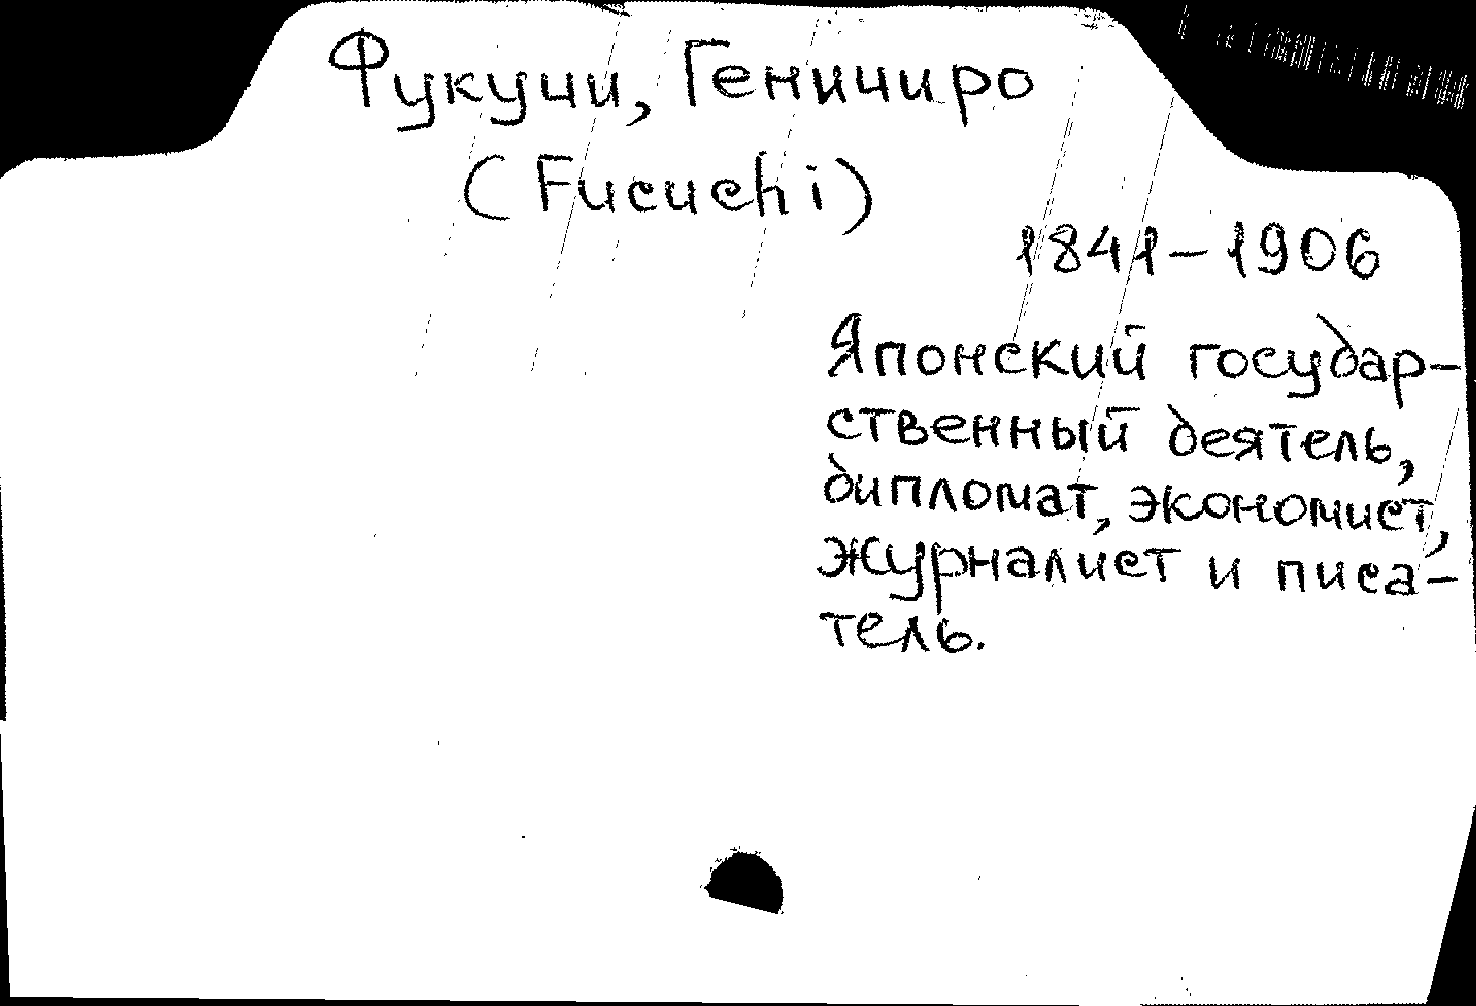 Фукучи, Геничиро
(Fucuchi)
1841-1906
Японский государ-
ственный деятель,
дипломат, экономист,
журналист и писа-
тель.